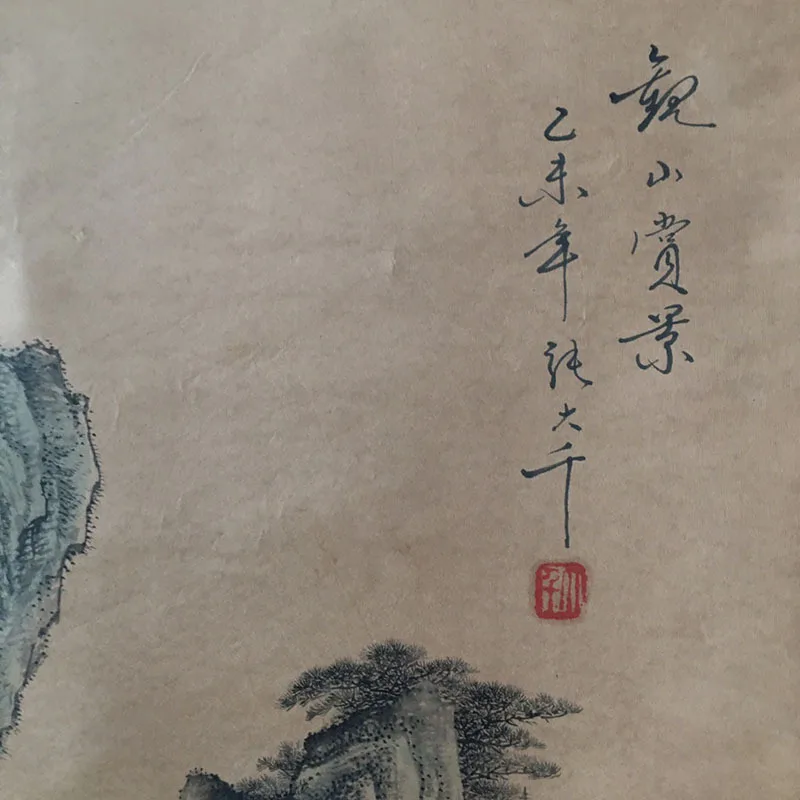 觀山賞景
乙未年張大千